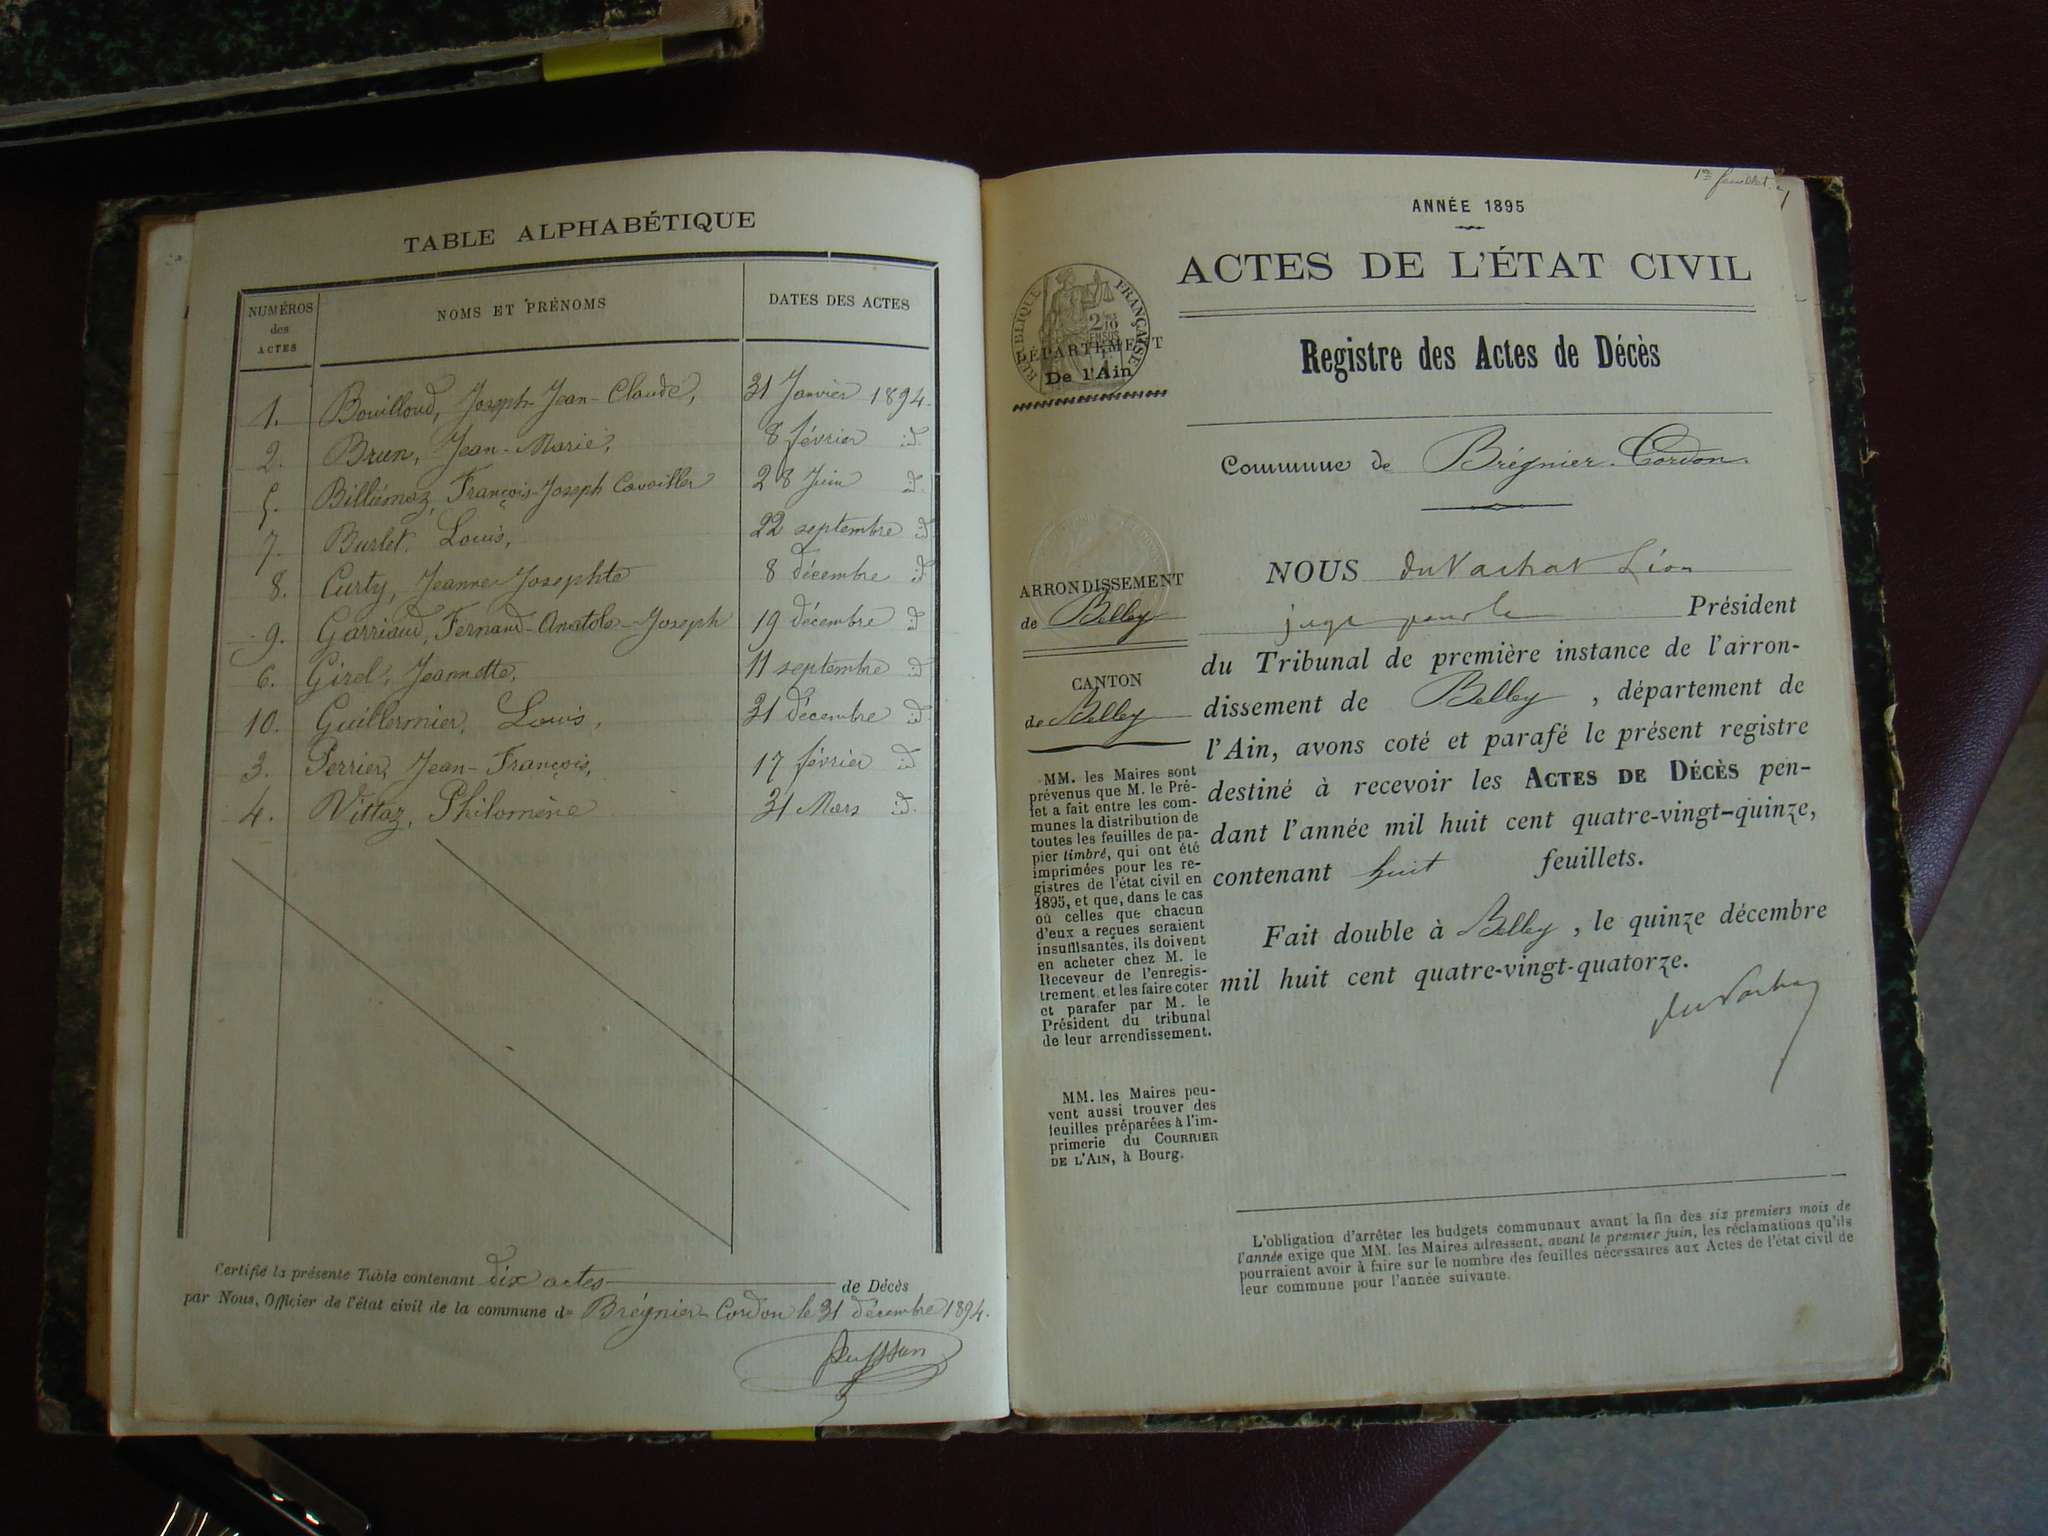 TABLE ALPHABÉTIQUE
NUMÉROS des ACTES NOMS ET PRÉNOMS DATES DES ACTES
1. Bouilloud, Joseph-Jean-Claude, 31 Janvier 1894.
2. Brun, Jean-Marie, 8 février id.
5. Billiémaz, François-Joseph Cavailler 28 Juin id.
7. Burlet, Louis, 22 septembre id
8. Curty, Jeanne-Josephte 8 décembre id
9. Garriaud, Fernand-Anatole-Joseph 19 décembre id
6. Girel, Jeannette, 11 septembre id
10. Guillermier, Louis, 31 décembre id
3. Perrier, Jean-François, 17 février id
4. Vittaz, Philomène 31 Mars id.
Certifié la présente Table contenant dix actes de Décès
par Nous, Officier de l'état civil de la commune de Brégnier-Cordon le 31 décembre 1894.
1er feuillet
ANNÉE 1895
ACTES DE L'ÉTAT CIVIL
RÉPUBLIQUE FRANÇAISE
DÉPARTEMENT
De l'Ain
Registre des Actes de Décès
Commune de Brégnier-Cordon.
ARRONDISSEMENT
de Belley
CANTON
de Belley
MM. les Maires sont
prévenus que M. le Pré-
fet a fait entre les com-
munes la distribution de
toutes les feuilles de pa-
pier timbré, qui ont été
imprimées pour les re-
gistres de l'état civil en
1895, et que, dans le cas
où celles que chacun
d'eux a reçues seraient
insuffisantes, ils doivent
en acheter chez M. le
Receveur de l'enregis-
trement et les faire coter
et parafer par M. le
Président du tribunal
de leur arrendissement.
MM. les Maires peu-
vent aussi trouver des
feuilles préparées à l'im-
primerie du COURRIER
DE L'AIN, à Bourg.
NOUS duVachat Léon
juge pour le Président
du Tribunal de première instance de l'arron-
dissement de Belley, département de
l'Ain, avons coté et parafé le présent registre
destiné à recevoir les ACTES DE DÉCÈS pen-
dant l'année mil huit cent quatre-vingt-quinze,
contenant huit feuillets.
Fait double à Belley, le quinze décembre
mil huit cent quatre-vingt-quatorze.
duVachat
L'obligation d'arrêter les budgets communaux avant la fin des six premiers mois de
l'année exige que MM. les Maires adressent, avant le premier juin, les réclamations qu'ils
pourraient avoir à faire sur le nombre des feuilles nécessaires aux Actes de l'état civil de
leur commune pour l'année suivante.